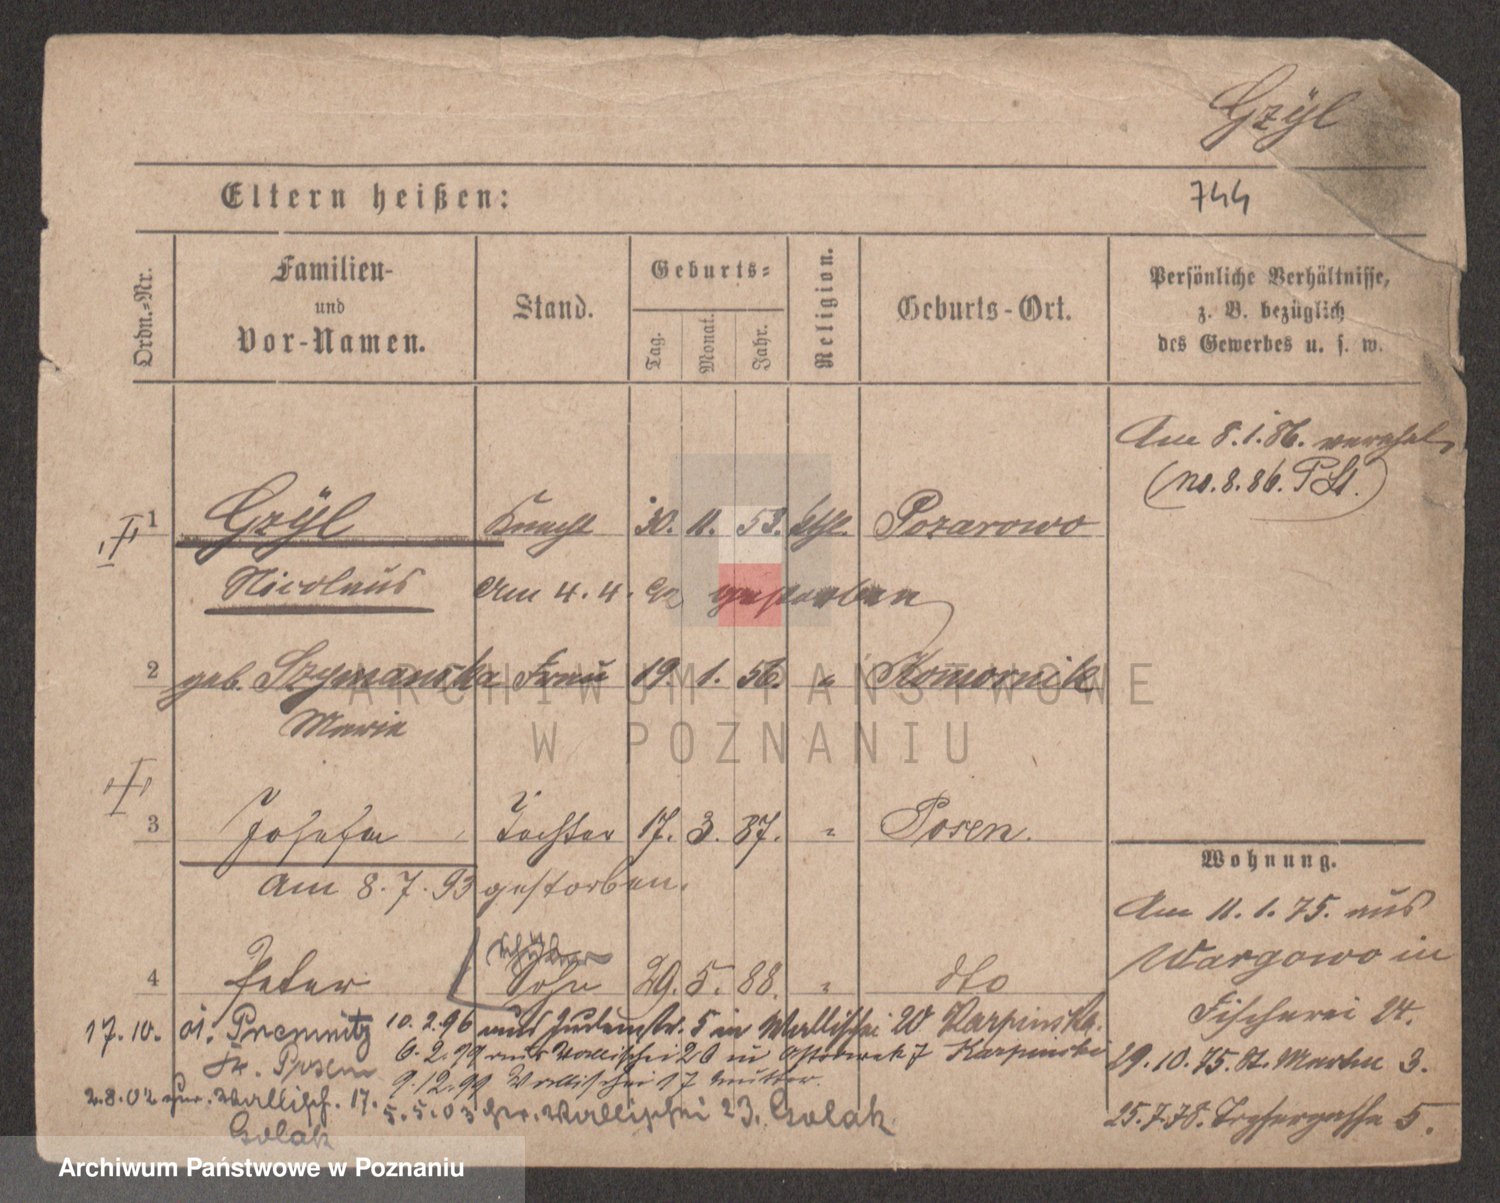 Gzÿl
744
Eltern heißen:
Ordn.-Nr.
Familien-
und
Vor-Namen.
Stand.
Geburts-
Tag.
Monat.
Jahr.
Religion.
Geburts-Ort.
Persönliche Verhältnisse,
z. B. bezüglich
des Gewerbes u. s. w.
Am 8.1.86. verehel.
(No. 8.86. P St.)
1 Gzÿl Knecht 30. 11. 53. kth. Pozarowo
Nicolaus Am 4. 4. gestorben
2 geb. Szymanska Frau 19. 1. 56. " Komornik
Marie
3 Josefa Tochter 17. 3. 87. " Posen.
Am 8.7.93 gestorben.
4 Peter Sohn 29. 5. 88. " dto
Wohnung.
Am 11.1.75. aus
Wargowo in
Fischerei 24.
29.10.75. St. Martin 3.
25.7.78. 5.
17.10. 01. Premnitz
Kr. Posen
10.2.96 aus Judenstr. 5 in Wallischei 20 Karpinska.
6.2.99 aus Wallischei 20 in Ostrowek 7 Karpinski
9.12.99 Wallischei 17 Mutter.
2.8.02 zur. Wallisch. 17.
Golak
5.5.03 Gr. Wallischei 23. Golak
ARCHIWUM PAŃSTWOWE
W POZNANIU
Archiwum Państwowe w Poznaniu